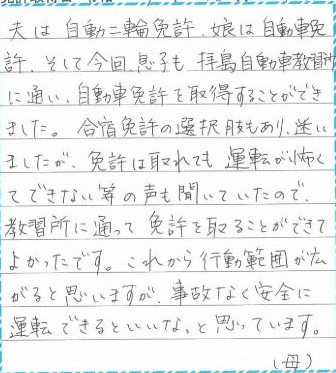 夫は自動二輪免許、娘は自動車免
許、そして今回、息子も拝島自動車教習所
に通い、自動車免許を取得することができ
ました。合宿免許の選択肢もあり、迷い
ましたが、免許は取れても運転が怖く
てできない等の声も聞いていたので、
教習所に通って免許を取ることができて
よかったです。これから行動範囲が広
がると思いますが、事故なく安全に
運転できるといいな、と思っています。
(母)